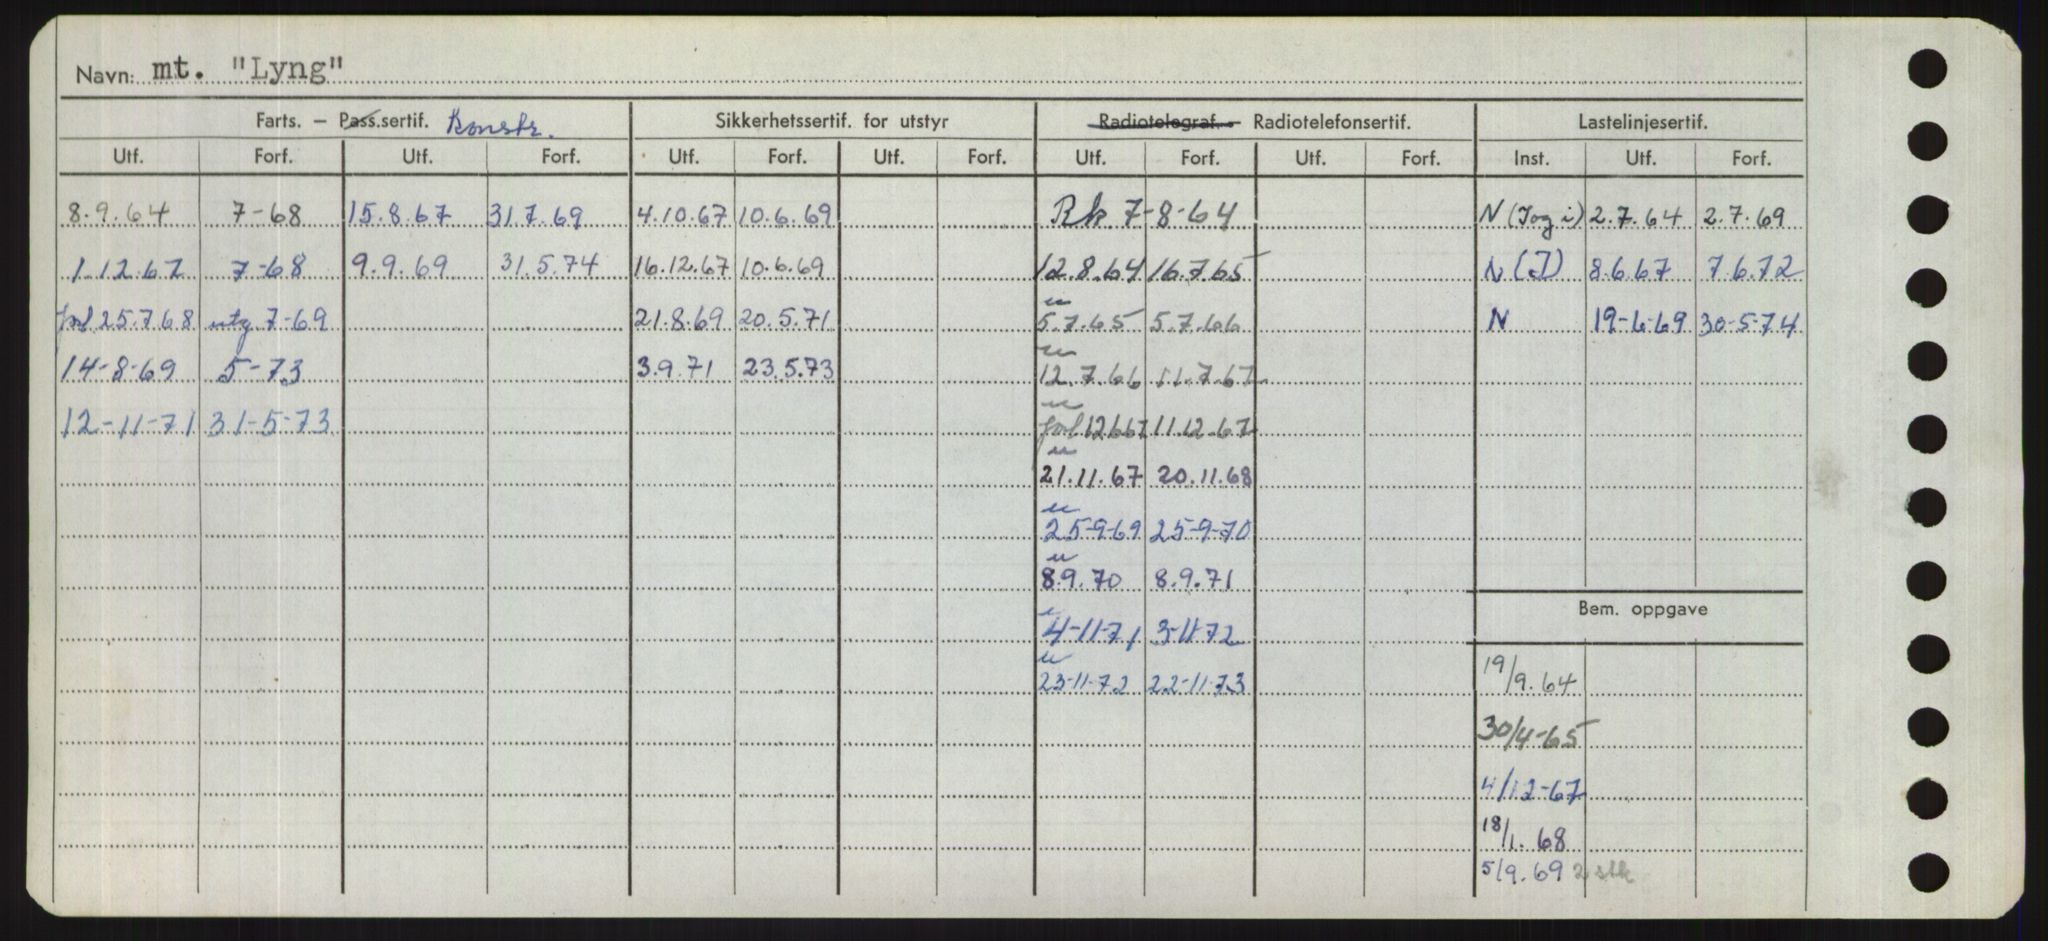 Navn: mt. "Lyng"
Farts. – Pass.sertif. Konstr. Sikkerhetssertif. for utstyr Radiotelegraf. – Radiotelefonsertif. Lastelinjesertif.
Utf. Forf. Utf. Forf. Utf. Forf. Utf. Forf. Utf. Forf. Utf. Forf. Inst. Utf. Forf.
8.9.64 7-68 15.8.67 31.7.69 4.10.67 10.6.69 Rk 7-8-64 N (I og i) 2.7.64 2.7.69
1.12.67 7-68 9.9.69 31.5.74 16.12.67 10.6.69 12.8.64 16.7.65 N (I) 8.6.67 7.6.72
forl 25.7.68 utg 7-69 21.8.69 20.5.71 " 5.7.65 5.7.66 N 19-6-69 30-5-74
14-8-69 5-73 3.9.71 23.5.73 " 12.7.66 11.7.67
12-11-71 31-5-73 " forl 12.6.67 11.12.67
" 21.11.67 20.11.68
" 25-9-69 25-9-70
" 8.9.70 8.9.71
" 4-11-71 3-11-72
" 23-11-72 22-11-73
Bem. oppgave
19/9.64
30/4-65
4/12-67
18/1.68
5/9.69 2 stk